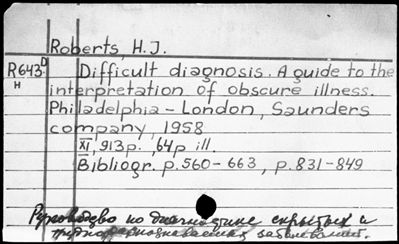 Roberts, H.J.
R643 D Difficult diagnosis. A guide to the
H interpretation of obscure illness.
Philadelphia - London, Saunders
company, 1958
XI, 913p., 64p ill.
Bibliogr. p.560-663, p.831-849
Руководство по диагностике скрытых и
труднораспознаваемых заболеваний.